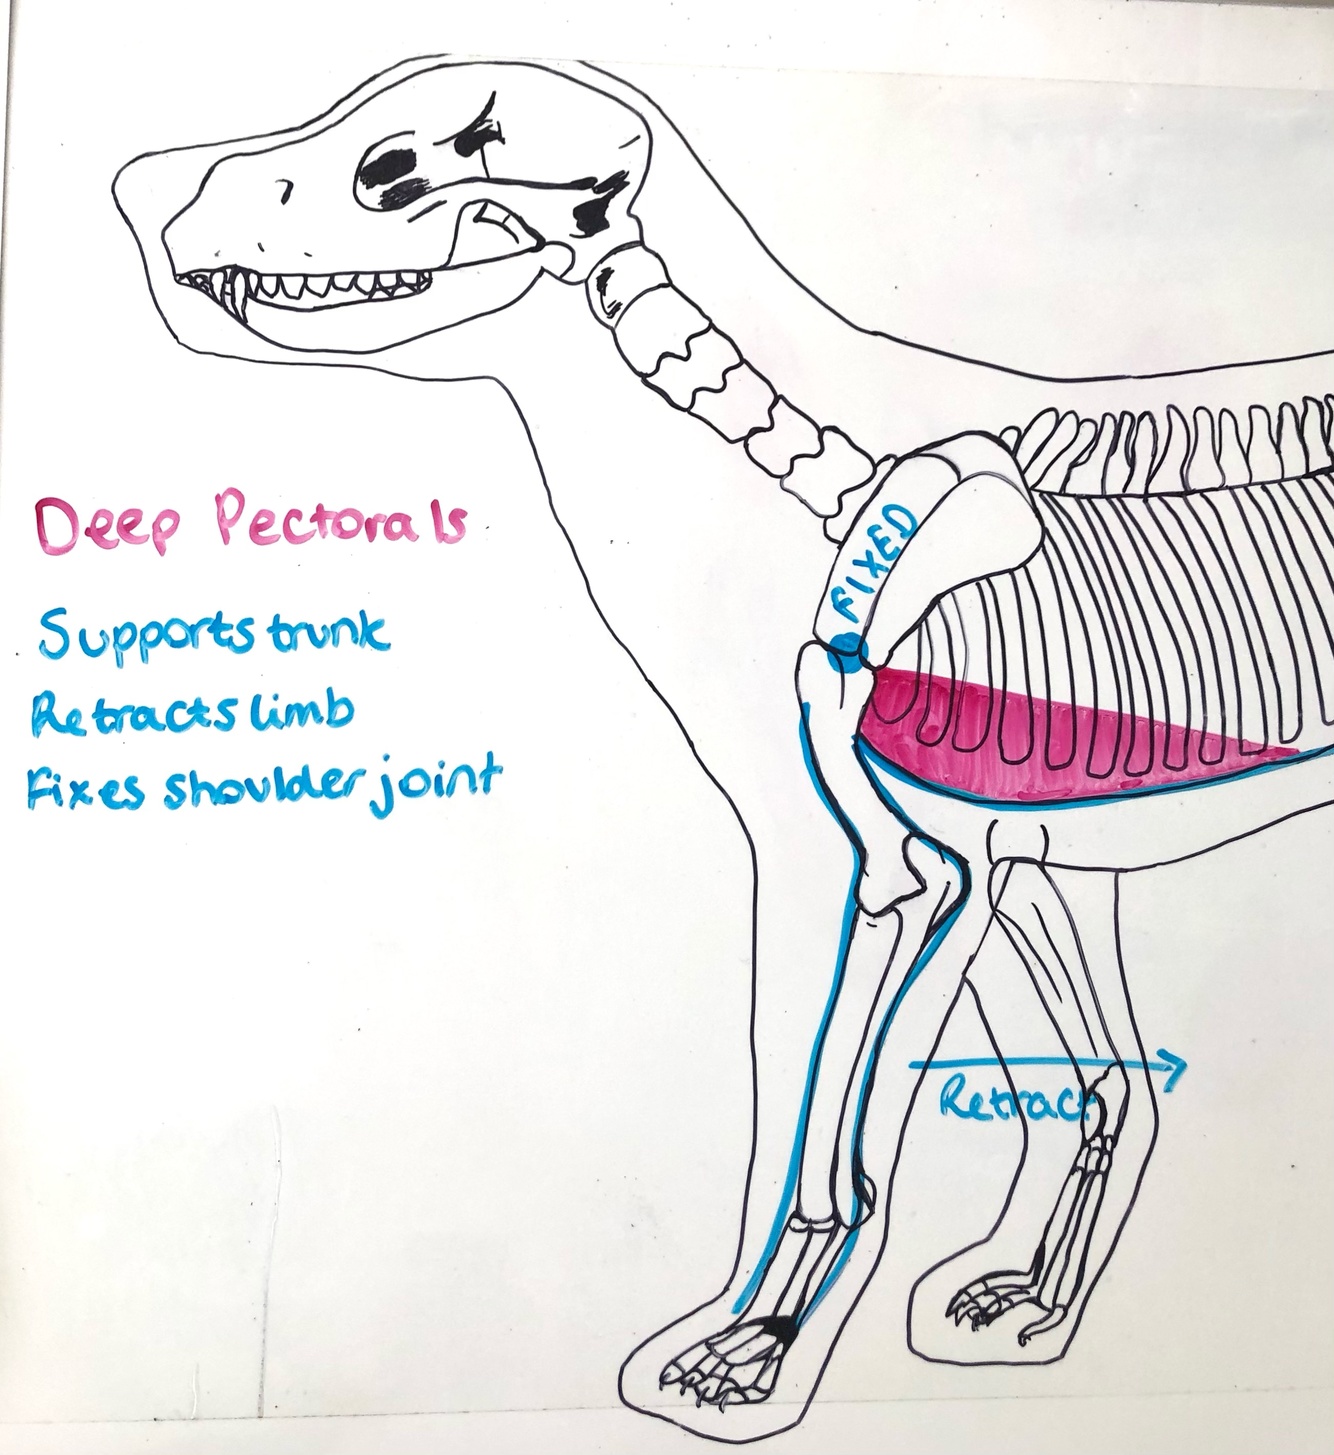 Deep Pectorals
Supports trunk
Retracts limb
Fixes shoulder joint
FIXED
Retract